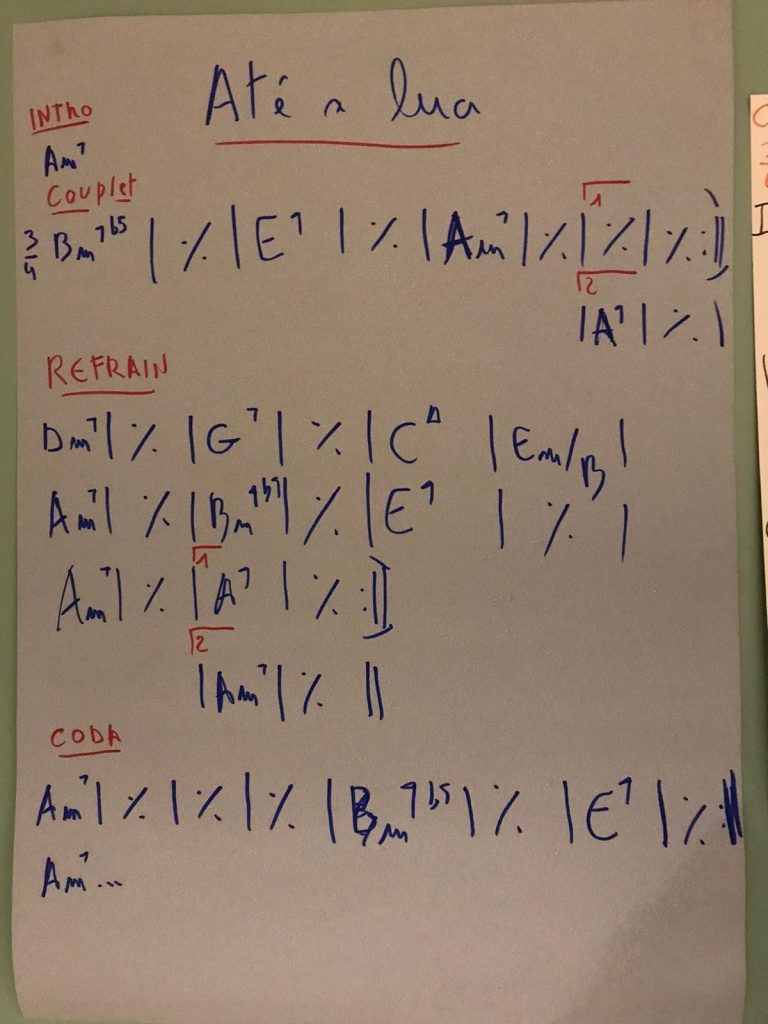 Até a lua
INTRO
Am7
Couplet
1
3/4 Bm7b5 | ٪ | E7 | ٪ | Am7 | ٪ | ٪ | ٪ :||
2
| A7 | ٪ |
REFRAIN
Dm7 | ٪ | G7 | ٪ | CΔ | Em/B |
Am7 | ٪ | Bm7b5 | ٪ | E7 | ٪ |
1
Am7 | ٪ | A7 | ٪ :||
2
| Am7 | ٪ ||
CODA
Am7 | ٪ | ٪ | ٪ | Bm7b5 | ٪ | E7 | ٪ :||
Am7...